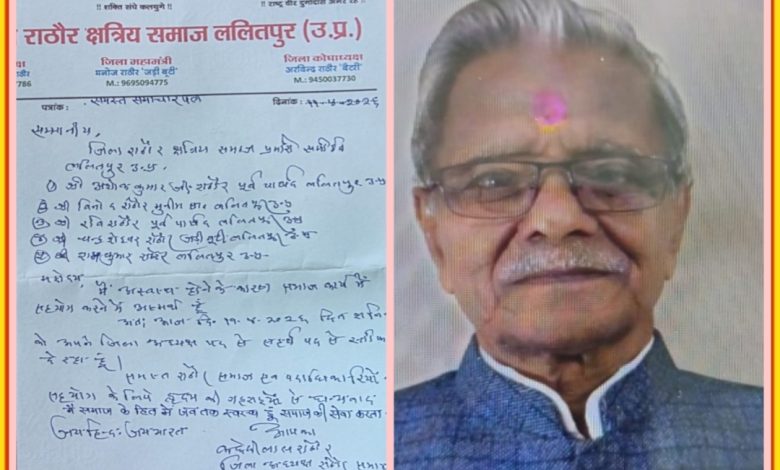 || शक्ति संघे कलयुगे ||
|| राष्ट्र वीर दुर्गादास अमर रहे ||
राठौर क्षत्रिय समाज ललितपुर (उ.प्र.)
ध्यक्ष
जिला महामंत्री
जिला कोषाध्यक्ष
ठौर
मनोज राठौर 'जड़ी बूटी'
अरविन्द राठौर 'बैटरी'
786
M.: 9695094775
M.: 9450037730
पत्रांक: समस्त समाचार पत्र
दिनांक:
सम्माननीय,
जिला राठौर क्षत्रिय समाज प्रभारी समिति
ललितपुर उ.प्र.
① श्री अशोक कुमार जी राठौर पूर्व पार्षद ललितपुर उ.प्र
② श्री विनोद राठौर मुनीम ललितपुर उ.प्र
③ श्री रवि राठौर पूर्व पार्षद ललितपुर उ.प्र
④ श्री चन्द्रशेखर राठौर जड़ी बूटी ललितपुर उ.प्र
⑤ श्री राम कुमार राठौर ललितपुर उ.प्र.
महोदय,
मैं अस्वस्थ होने के कारण समाज कार्य में
सहयोग करने में असमर्थ हूँ
अतः आज दि. दिन शनि
को अपने जिला अध्यक्ष पद से सहर्ष पद से
दे रहा हूँ।
समस्त राठौर समाज एवं पदाधिकारियों
सहयोग के लिये हृदय की गहराईयों से धन्यवाद
में समाज के हित में जब तक स्वस्थ हूँ समाज की सेवा करता
जय हिन्द: जय भारत
आपका
राठौर
जिला अध्यक्ष राठौर समाज